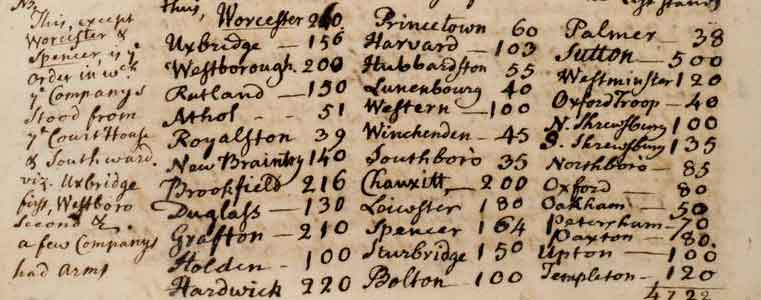 This, except
Worcester &
Spencer, is yᵉ
order in wᶜʰ
yᵉ Companys
stood from
yᵉ Court House
& Southward.
viz. Uxbridge
first, Westboro
second &c.
a few Companys
had arms
this, Worcester
Uxbridge — 156
Westborough 200
Rutland — 150
Athol - - 51
Royalston 39
New Braintry 140
Brookfield 216
Duglass — 130
Grafton — 210
Holden - 100
Hardwick 220
Princetown 60
Harvard — 103
Hubbardston 55
Lunenbourg 40
Western — 100
Winchenden — 45
Southboro 35
Chauxitt, — 200
Leicester 180
Spencer 164
Sturbridge 150
Bolton — 100
Palmer — 38
Sutton — 500
Westminster 120
Oxford Troop — 40
N. Shrewsbury 100
S. Shrewsbury 135
Northboro — 85
Oxford — 80
Oakham — 50
Petersham — 70
Paxton — 80.
Upton — 100
Templeton — 120
4722